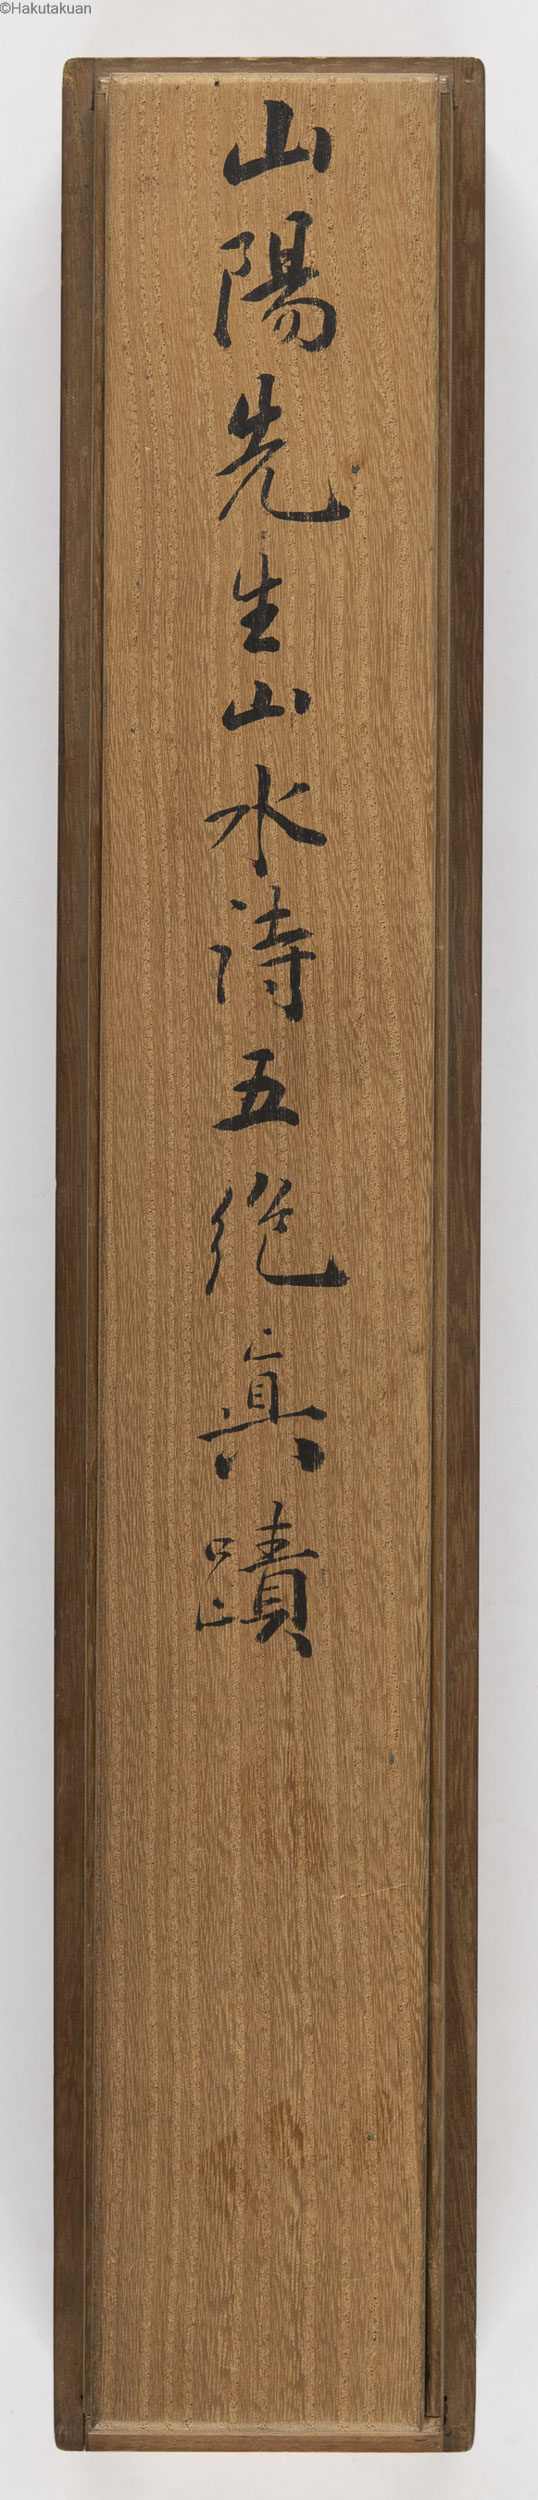 ©Hakutakuan
山陽先生山水詩五絶真蹟